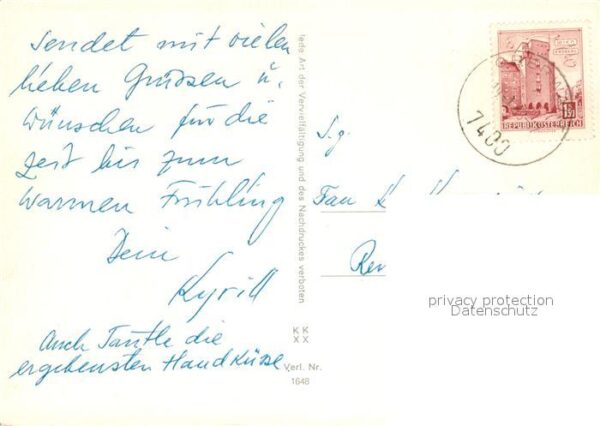 Sendet mit vielen
lieben Grüssen u.
Wünschen für die
Zeit bis zum
warmen Frühling
Dein
Kyrill
Auch Tantle die
ergebensten Handküsse
jede Art der Vervielfältigung und des Nachdruckes verboten
KK
XX
Verl. Nr.
1648
S.g.
REPUBLIK ÖSTERREICH
7400
privacy protection
Datenschutz